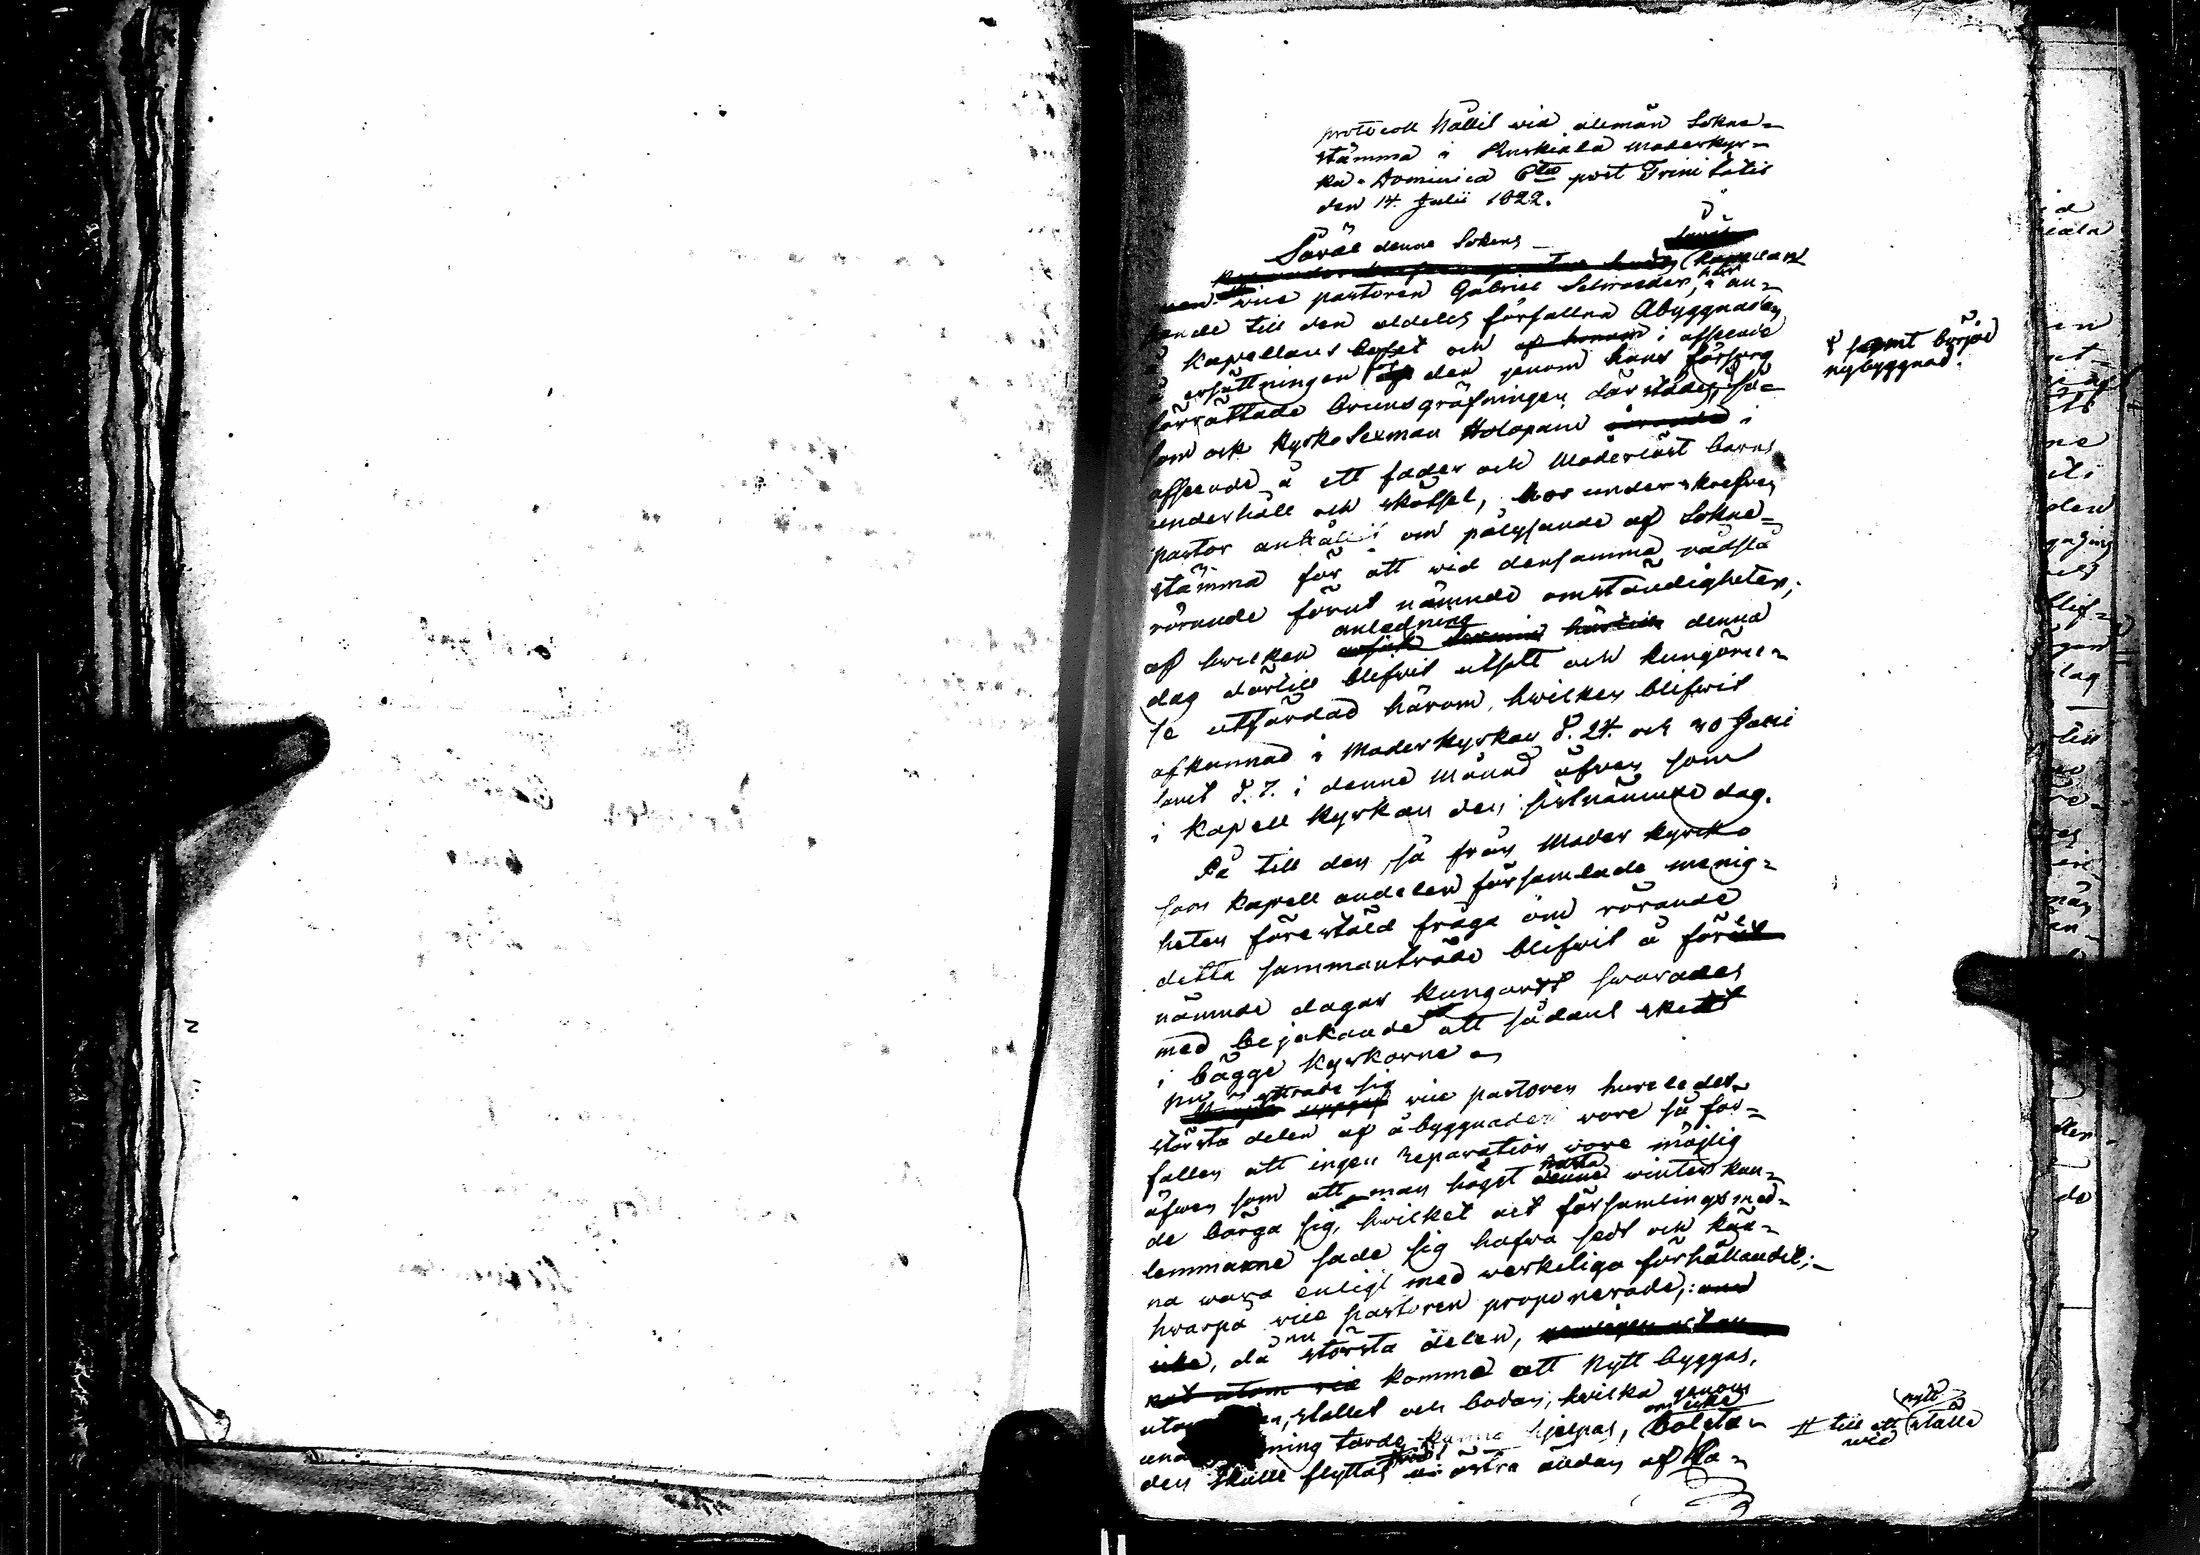 protocoll hållit vid allmän Sokne-
stämma i Ruskeala Moderkyr-
ka Dominica 6ta post Trinitatis
den 14. Julii 1822.
Såväl denne Sokens
Kapellan
vice pastoren Gabriel Schroeder, i an-
ende till den aldeles förfallna Åbyggnaden
å kapellans bohlet och af honom i afseende
å ersättningen af den genom hans försorg
förrättade brunsgräfningen därstädes, så-
som ock Kyrko Sexman Holopain i
afseende å ett fader och Moderlöst barns
underhåll och skötsel, hos underskrefven
pastor anhållit om pålysande af Sokne-
stämma för att vid densamma rådslå
rörande förut nämnde omständigheter;
anledning
af hvilken denna
dag därtill blifvit utsatt och kungörel-
se utfärdad härom, hvilken blifvit
afkunnad i Moderkyrkan d. 24. och 30 Junii
samt d. 7. i denne Månad äfven som
i Kapell kyrkan den sistnämnde dag.
På till den så från Moder kyrko
som kapell andelen församlade menig-
heten förestäld fråga om rörande
detta sammanträde blifvit å för
nämnde dagar kungordt svarades
med bejakande att sådant skedt
i bägge kyrkorne
nu yttrade sig vice pastoren hurledes
största delen af åbyggnaden vore så för-
fallen att ingen reparation vore möjlig
nästa
äfven som att man högst denna winter kun-
de bärga sig, hvilket ock församlingsmed-
lemmarne sade sig hafva sedt och kän-
na vara enligt med verkeliga förhållandet;
hvarpå vice pastoren proponerade,
då nu största delen,
komme att Nytt byggas,
stallet och bodan, hvilka genom
ning torde kunna hjelpas, bolsta-
den skulle flyttas östra ändan af
samt börjad
nybyggnad.
till ett nytt ställe
vid